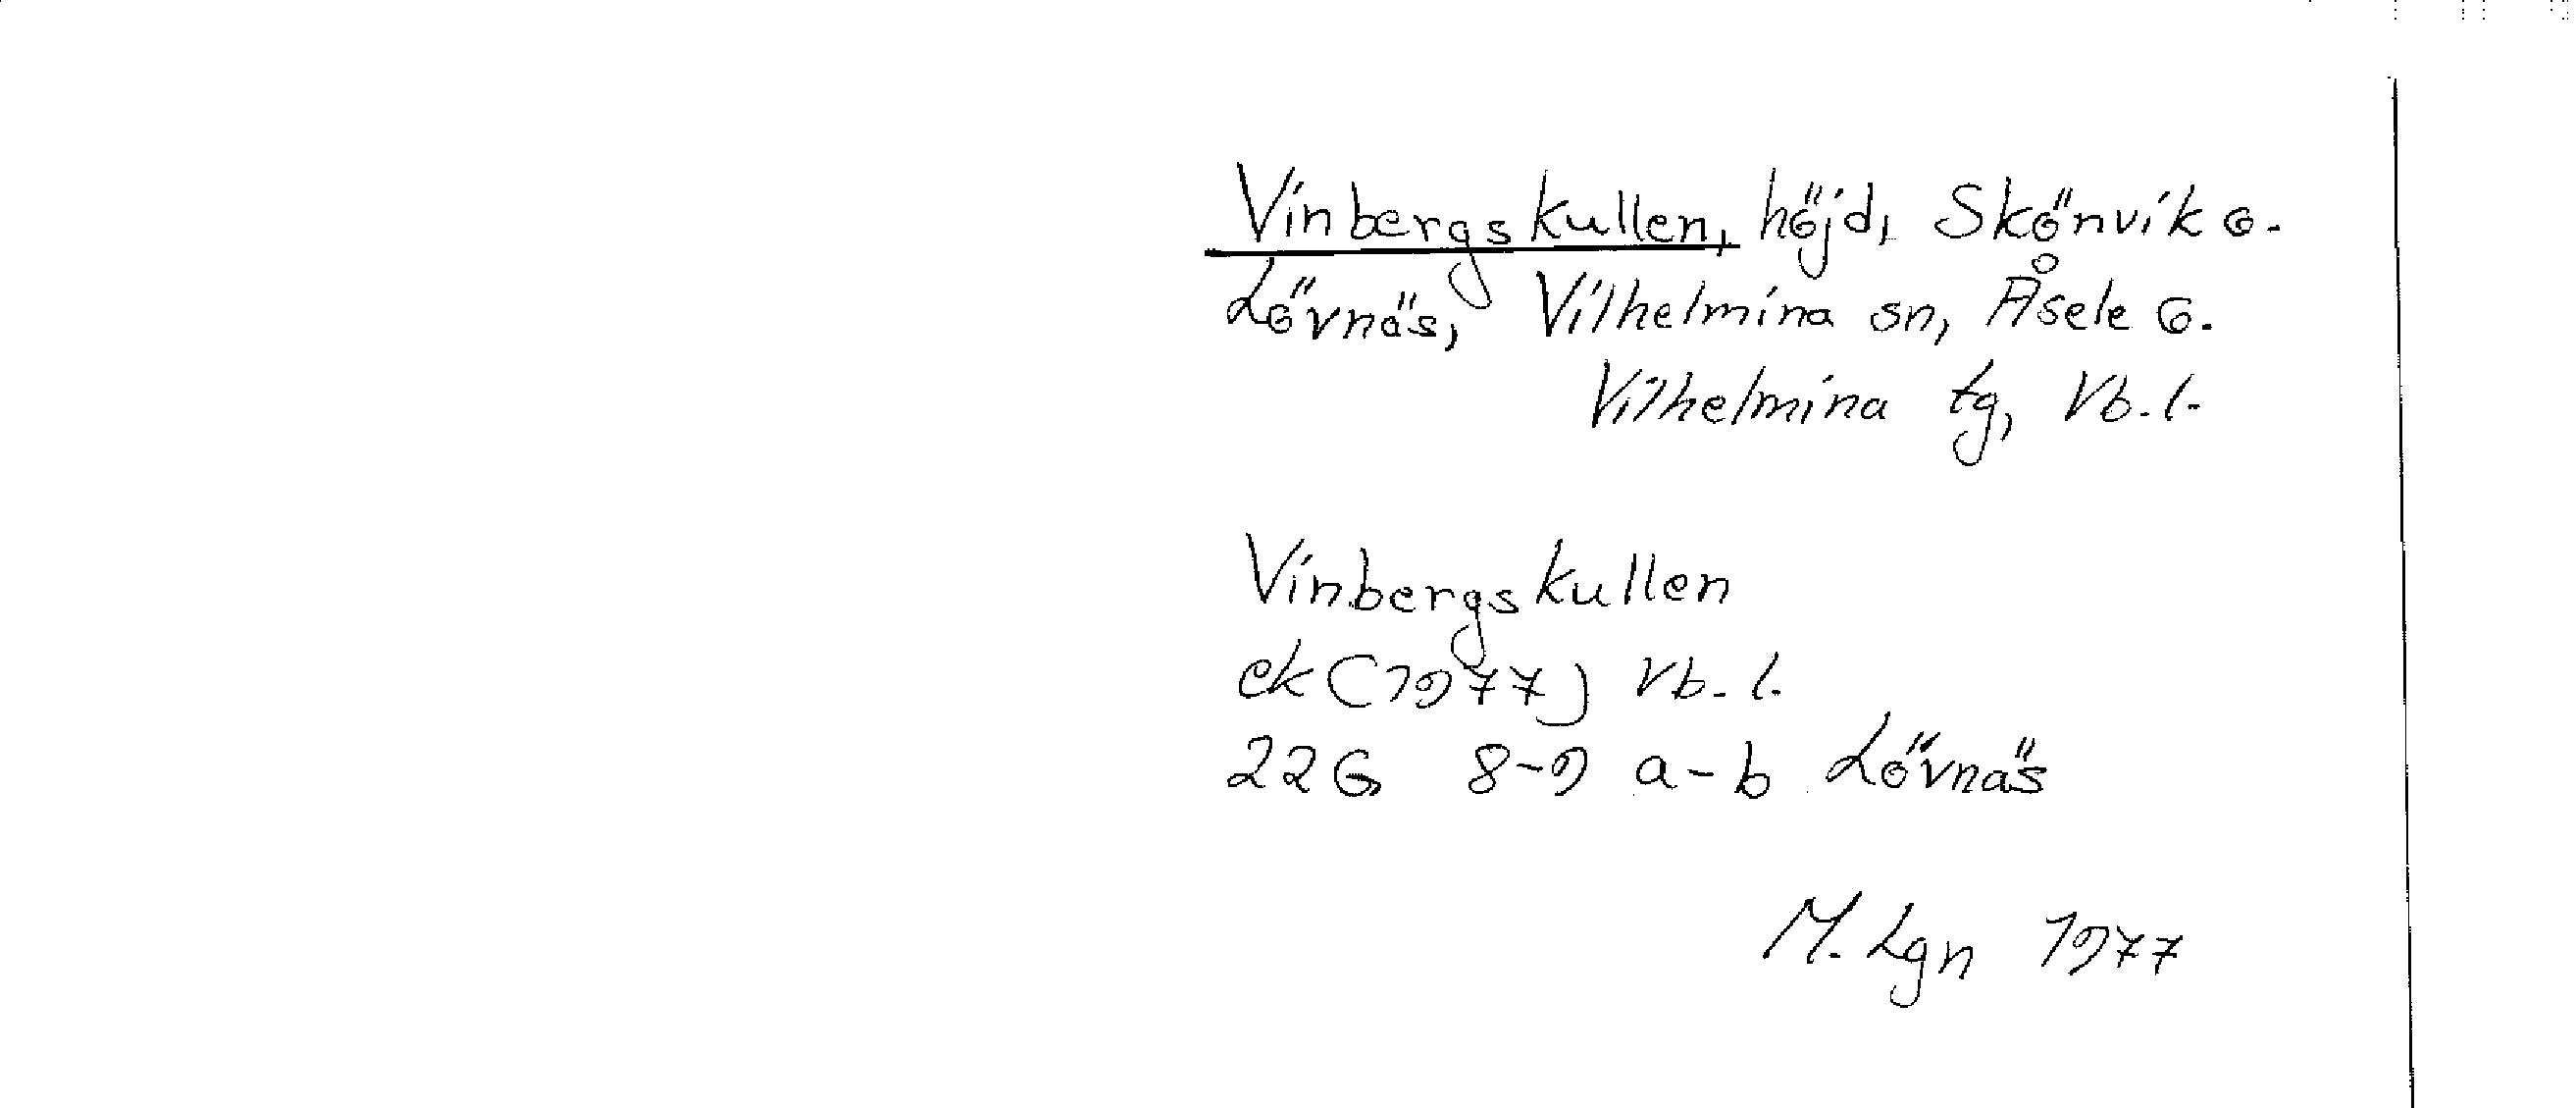 Vinbergskullen, höjd, Skönvik o.
Lövnäs, Vilhelmina sn, Åsele o.
Vilhelmina tg, Vb. l.
Vinbergskullen
ek (1977) Vb. l.
22G 8-9 a-b Lövnäs
M. Lgn 1977